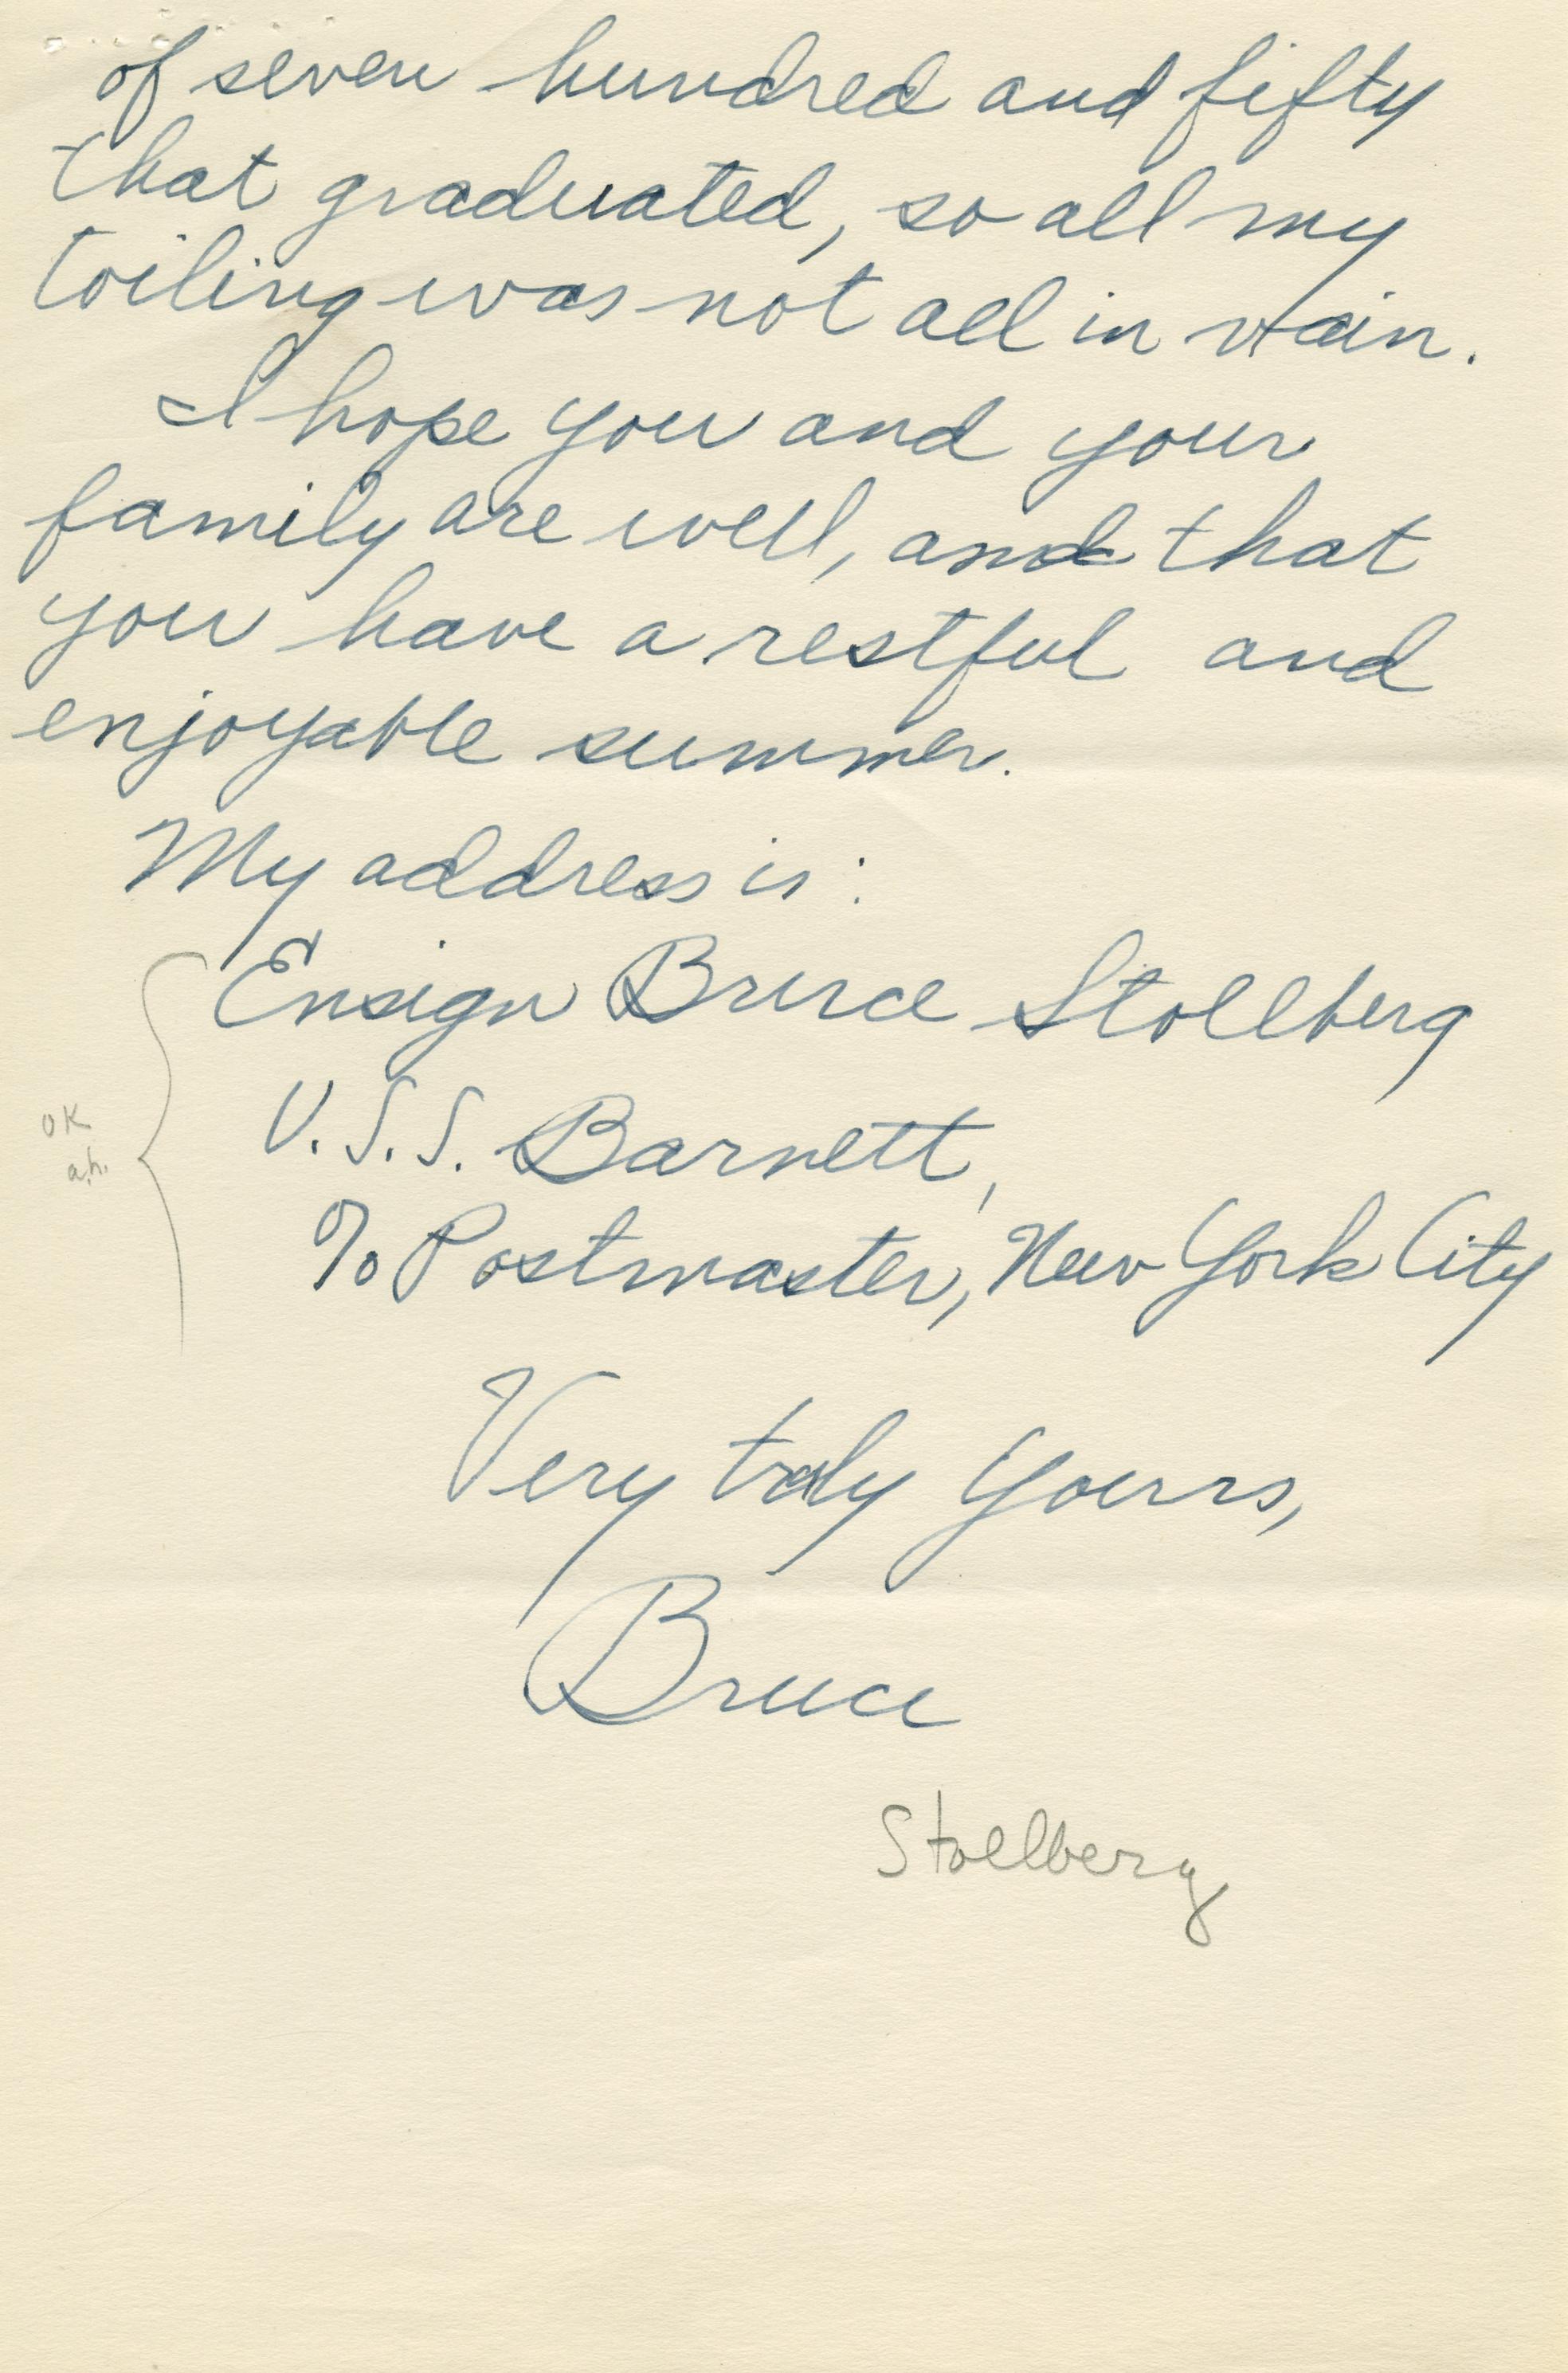 of seven hundred and fifty
that graduated, so all my
toiling was not all in vain.
I hope you and your
family are well, and that
you have a restful and
enjoyable summer.
My address is:
Ensign Bruce Stollberg
U.S.S. Barnett,
OK
a.h.
℅ Postmaster, New York City
Very truly yours,
Bruce
Stollberg